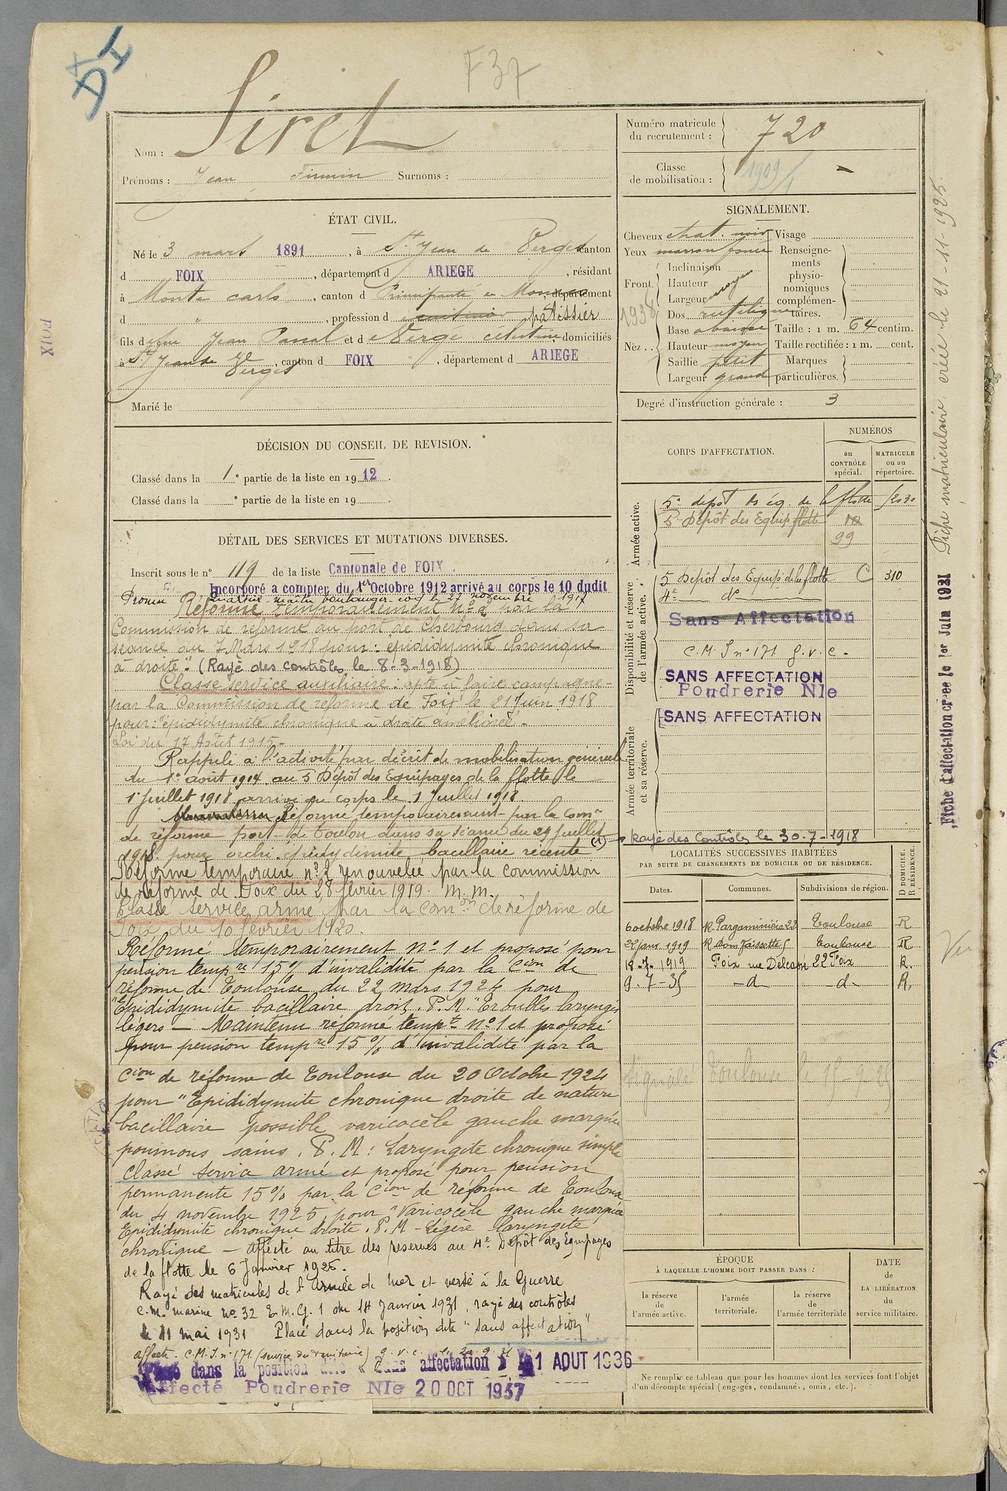 DI
F37
Nom : Siret
Prénoms : Jean Firmin Surnoms :
Numéro matricule du recrutement : 720
Classe de mobilisation : 1909/1
ÉTAT CIVIL.
Né le 3 mars 1891, à St Jean de Verges canton
d FOIX, département d ARIEGE, résidant
à Monte carlo, canton d Principauté de Monaco, département
d " , profession d pâtissier
fils de Jean Pascal et de Verge Célestine domiciliés
à St Jean de Verges, canton d FOIX, département d ARIEGE
Marié le
SIGNALEMENT.
Cheveux chat. noir Visage
Yeux marron foncé
Front. Inclinaison
Hauteur
Largeur moyen
Nez. Dos rectiligne
Base abaissé
Hauteur moyen
Saillie petit
Largeur grand
Renseignements physionomiques complémentaires.
Taille : 1 m. 64 centim.
Taille rectifiée : 1 m. cent.
Marques particulières.
1938
Degré d'instruction générale : 3
DÉCISION DU CONSEIL DE REVISION.
Classé dans la 1e partie de la liste en 1912.
Classé dans la e partie de la liste en 19 .
DÉTAIL DES SERVICES ET MUTATIONS DIVERSES.
Inscrit sous le n° 119 de la liste Cantonale de FOIX.
Incorporé a compter du 1er Octobre 1912 arrivé au corps le 10 dudit
Promu quartier maître boulanger coq le 21 novembre 1917
Réformé temporairement n° 2 par la
Commission de réforme du port de Cherbourg dans sa
séance du 7 Mars 1918 pour : epididymite chronique
à droite". (Rayé des contrôles le 8-3-1918)
Classé service auxiliaire : apte à faire campagne
par la Commission de réforme de Foix le 21 juin 1918
pour : épididymite chronique à droite améliorée.
Loi du 17 Août 1915.
Rappelé à l'activité par décret de mobilisation général
du 1er août 1914 au 5 Dépôt des Equipages de la flotte le
1er juillet 1918 arrivé au corps le 1 Juillet 1918
Réformé temporairement par la Comon
de réforme port de Toulon dans sa séance du 29 juillet
1918 pour orchi épididymite bacillaire récente (1)
(1) Rayé des Contrôles le 30-7-1918
Réforme temporaire n° 2 renouvelée par la commission
de réforme de Foix du 28 février 1919. M.M.
Classé service armé par la Comon de réforme de
Foix du 10 février 1920.
Réformé temporairement n° 1 et proposé pour
pension tempre 15% d'invalidité par la Cion de
réforme de Toulouse du 22 mars 1924 pour
"Epididymite bacillaire droit. P.M. "Troubles laryngés
légers — Maintenu réformé tempre n° 1 et proposé
pour pension tempre 15% d'invalidité par la
Cion de réforme de Toulouse du 20 Octobre 1924
pour "Epididymite chronique droite de nature
bacillaire possible varicocèle gauche marquée
poumons sains. P.M : Laryngite chronique simple
Classé service armé et proposé pour pension
permanente 15% par la Cion de réforme de Toulouse
du 4 novembre 1925 pour "Varicocèle gauche marquée
Epididymite chronique droite. P.M - Légère laryngite
chronique — Affecté au titre des reserves au 4e Dépôt des Equipages
de la flotte le 6 Janvier 1926.
Rayé des matricules de l'Armée de Mer et versé à la Guerre
C.M. marine no 32 E.M.G. 1 du 14 Janvier 1931, rayé des contrôles
le 11 mai 1931 Placé dans la position dite "sans affectation"
Placé dans la position dite « Sans affectation » le 1 AOUT 1936
Affecté Poudrerie Nle 20 OCT 1937
CORPS D'AFFECTATION.
NUMÉROS
au CONTRÔLE spécial.
MATRICULE ou au répertoire.
Armée active.
5e dépôt des éq. de la flotte
5e Dépôt des Equip. flotte
99
Disponibilité et réserve de l'armée active.
5 Dépôt des Equip. de la flotte C 310
4e do
Sans Affectation
C.M. I n° 171 g.v.c.
SANS AFFECTATION
Poudrerie Nle
Armée territoriale et sa réserve.
SANS AFFECTATION
LOCALITÉS SUCCESSIVES HABITÉES
PAR SUITE DE CHANGEMENTS DE DOMICILE OU DE RÉSIDENCE.
Dates. Communes. Subdivisions de région. D DOMICILE. R RÉSIDENCE.
6 octobre 1918 R Pargaminières 23 Toulouse R
22 janv. 1919 R Dom Vaissette 5 Toulouse R
12-7-1919 Foix rue Delcasse 22 Foix R.
9-7-35 -d- -d- R.
ÉPOQUE
À LAQUELLE L'HOMME DOIT PASSER DANS :
la réserve de l'armée active.
l'armée territoriale.
la réserve de l'armée territoriale
DATE de LA LIBÉRATION du service militaire.
Ne remplir ce tableau que pour les hommes dont les services font l'objet
d'un décompte spécial (engagés, condamnés, omis, etc.).
Fiche matriculaire créée le 21-11-1925.
Fiche d'affectation créée le 1er Juin 1931
FOIX